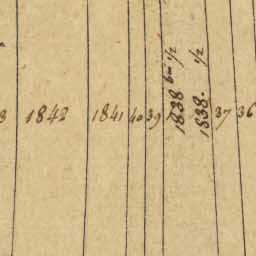 3 1842 1841 40 39 37 36
1838 bis 1/2
1838. 1/2